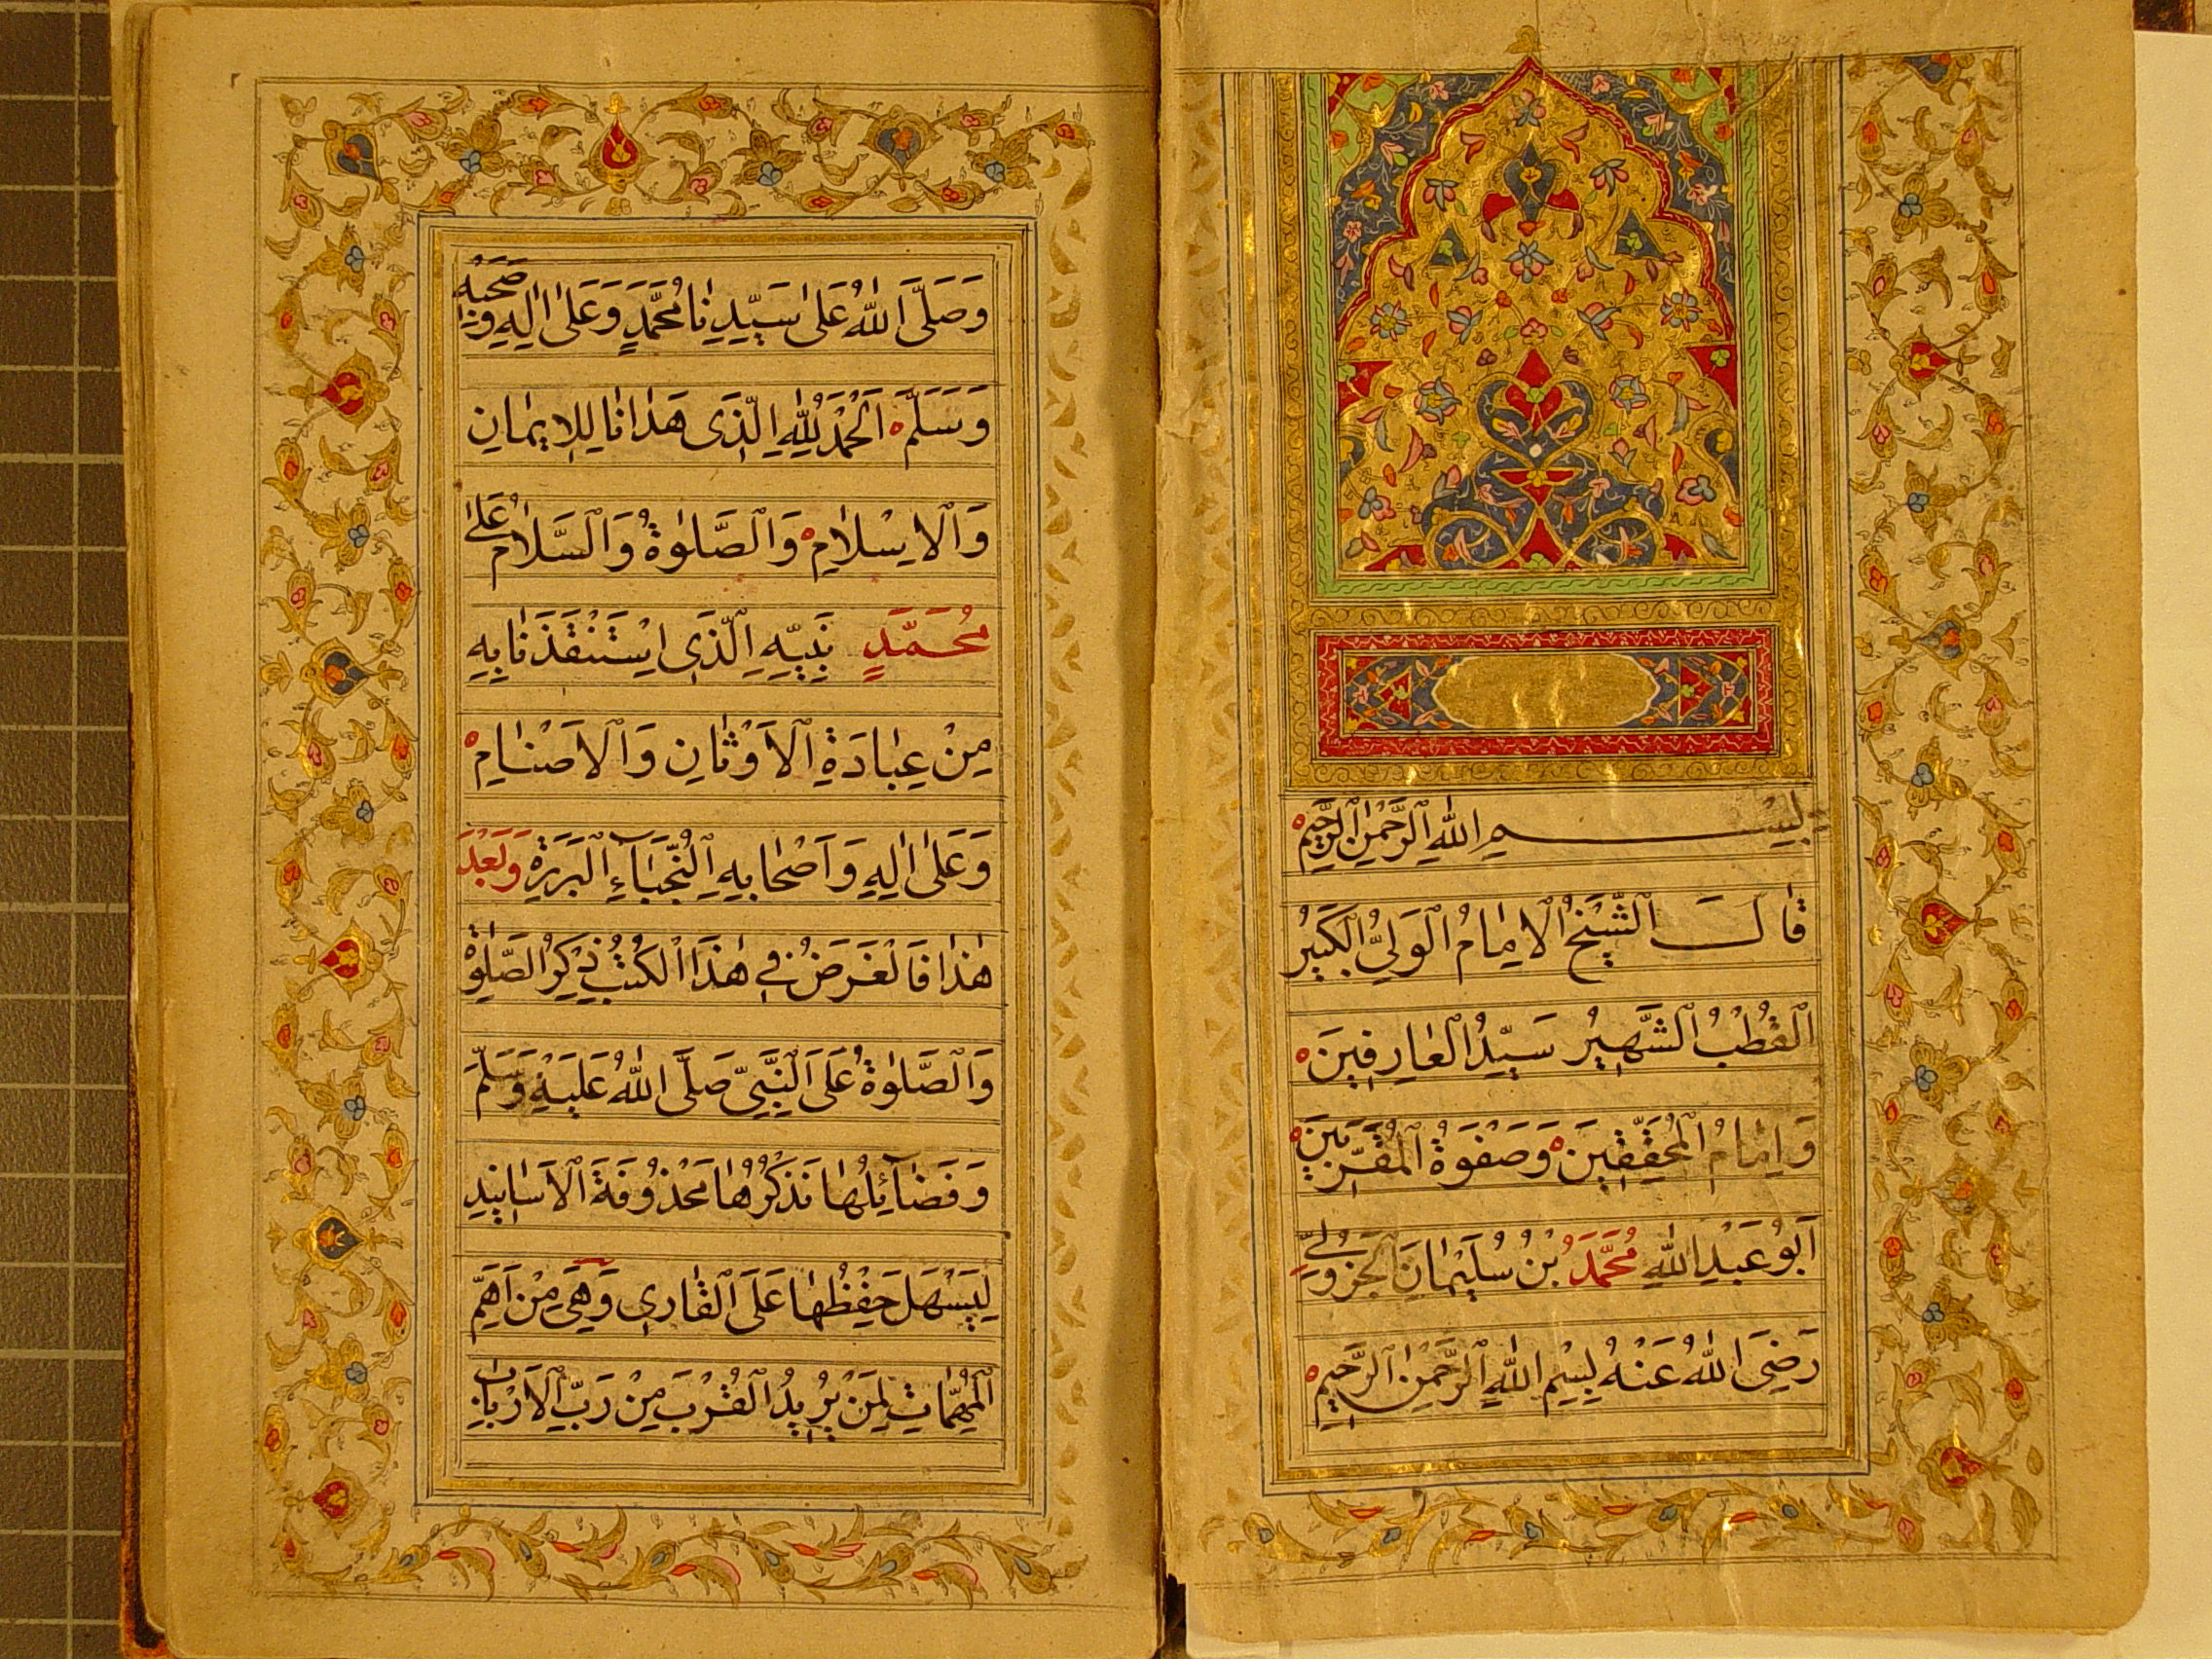 بِسْمِ اللهِ الرَّحْمٰنِ الرَّحِيْمِ
قَالَ الشَّيْخُ الْاِمَامُ الْوَلِيُّ الْكَبِيْرُ
الْقُطْبُ الشَّهِيْرُ سَيِّدُ الْعَارِفِيْنَ
وَاِمَامُ الْمُحَقِّقِيْنَ وَصَفْوَةُ الْمُقَرَّبِيْنَ
اَبُوْ عَبْدِ اللهِ مُحَمَّدُ بْنُ سُلَيْمَانَ الْجَزُوْلِيُّ
رَضِيَ اللهُ عَنْهُ بِسْمِ اللهِ الرَّحْمٰنِ الرَّحِيْمِ
وَصَلَّى اللهُ عَلٰى سَيِّدِنَا مُحَمَّدٍ وَعَلٰى اٰلِهٖ وَصَحْبِهٖ
وَسَلَّمَ اَلْحَمْدُ لِلّٰهِ الَّذِى هَدَانَا لِلْاِيْمَانِ
وَالْاِسْلَامِ وَالصَّلٰوةُ وَالسَّلَامُ عَلٰى
مُحَمَّدٍ نَبِيِّهِ الَّذِى اسْتَنْقَذَنَا بِهٖ
مِنْ عِبَادَةِ الْاَوْثَانِ وَالْاَصْنَامِ
وَعَلٰى اٰلِهٖ وَاَصْحَابِهِ النُّجَبَآءِ الْبَرَرَةِ وَبَعْدَ
هٰذَا فَالْغَرَضُ فِي هٰذَا الْكُتُبِ ذِكْرُ الصَّلٰوةِ
وَالصَّلٰوةُ عَلَى النَّبِيِّ صَلَّى اللهُ عَلَيْهِ وَسَلَّمَ
وَفَضَآئِلُهَا نَذْكُرُهَا مَحْذُوْفَةَ الْاَسَانِيْدِ
لِيَسْهَلَ حِفْظُهَا عَلَى الْقَارِى وَهِىَ مِنْ اَهَمِّ
الْمُهِمَّاتِ لِمَنْ يُرِيْدُ الْقُرْبَ مِنْ رَبِّ الْاَرْبَابِ